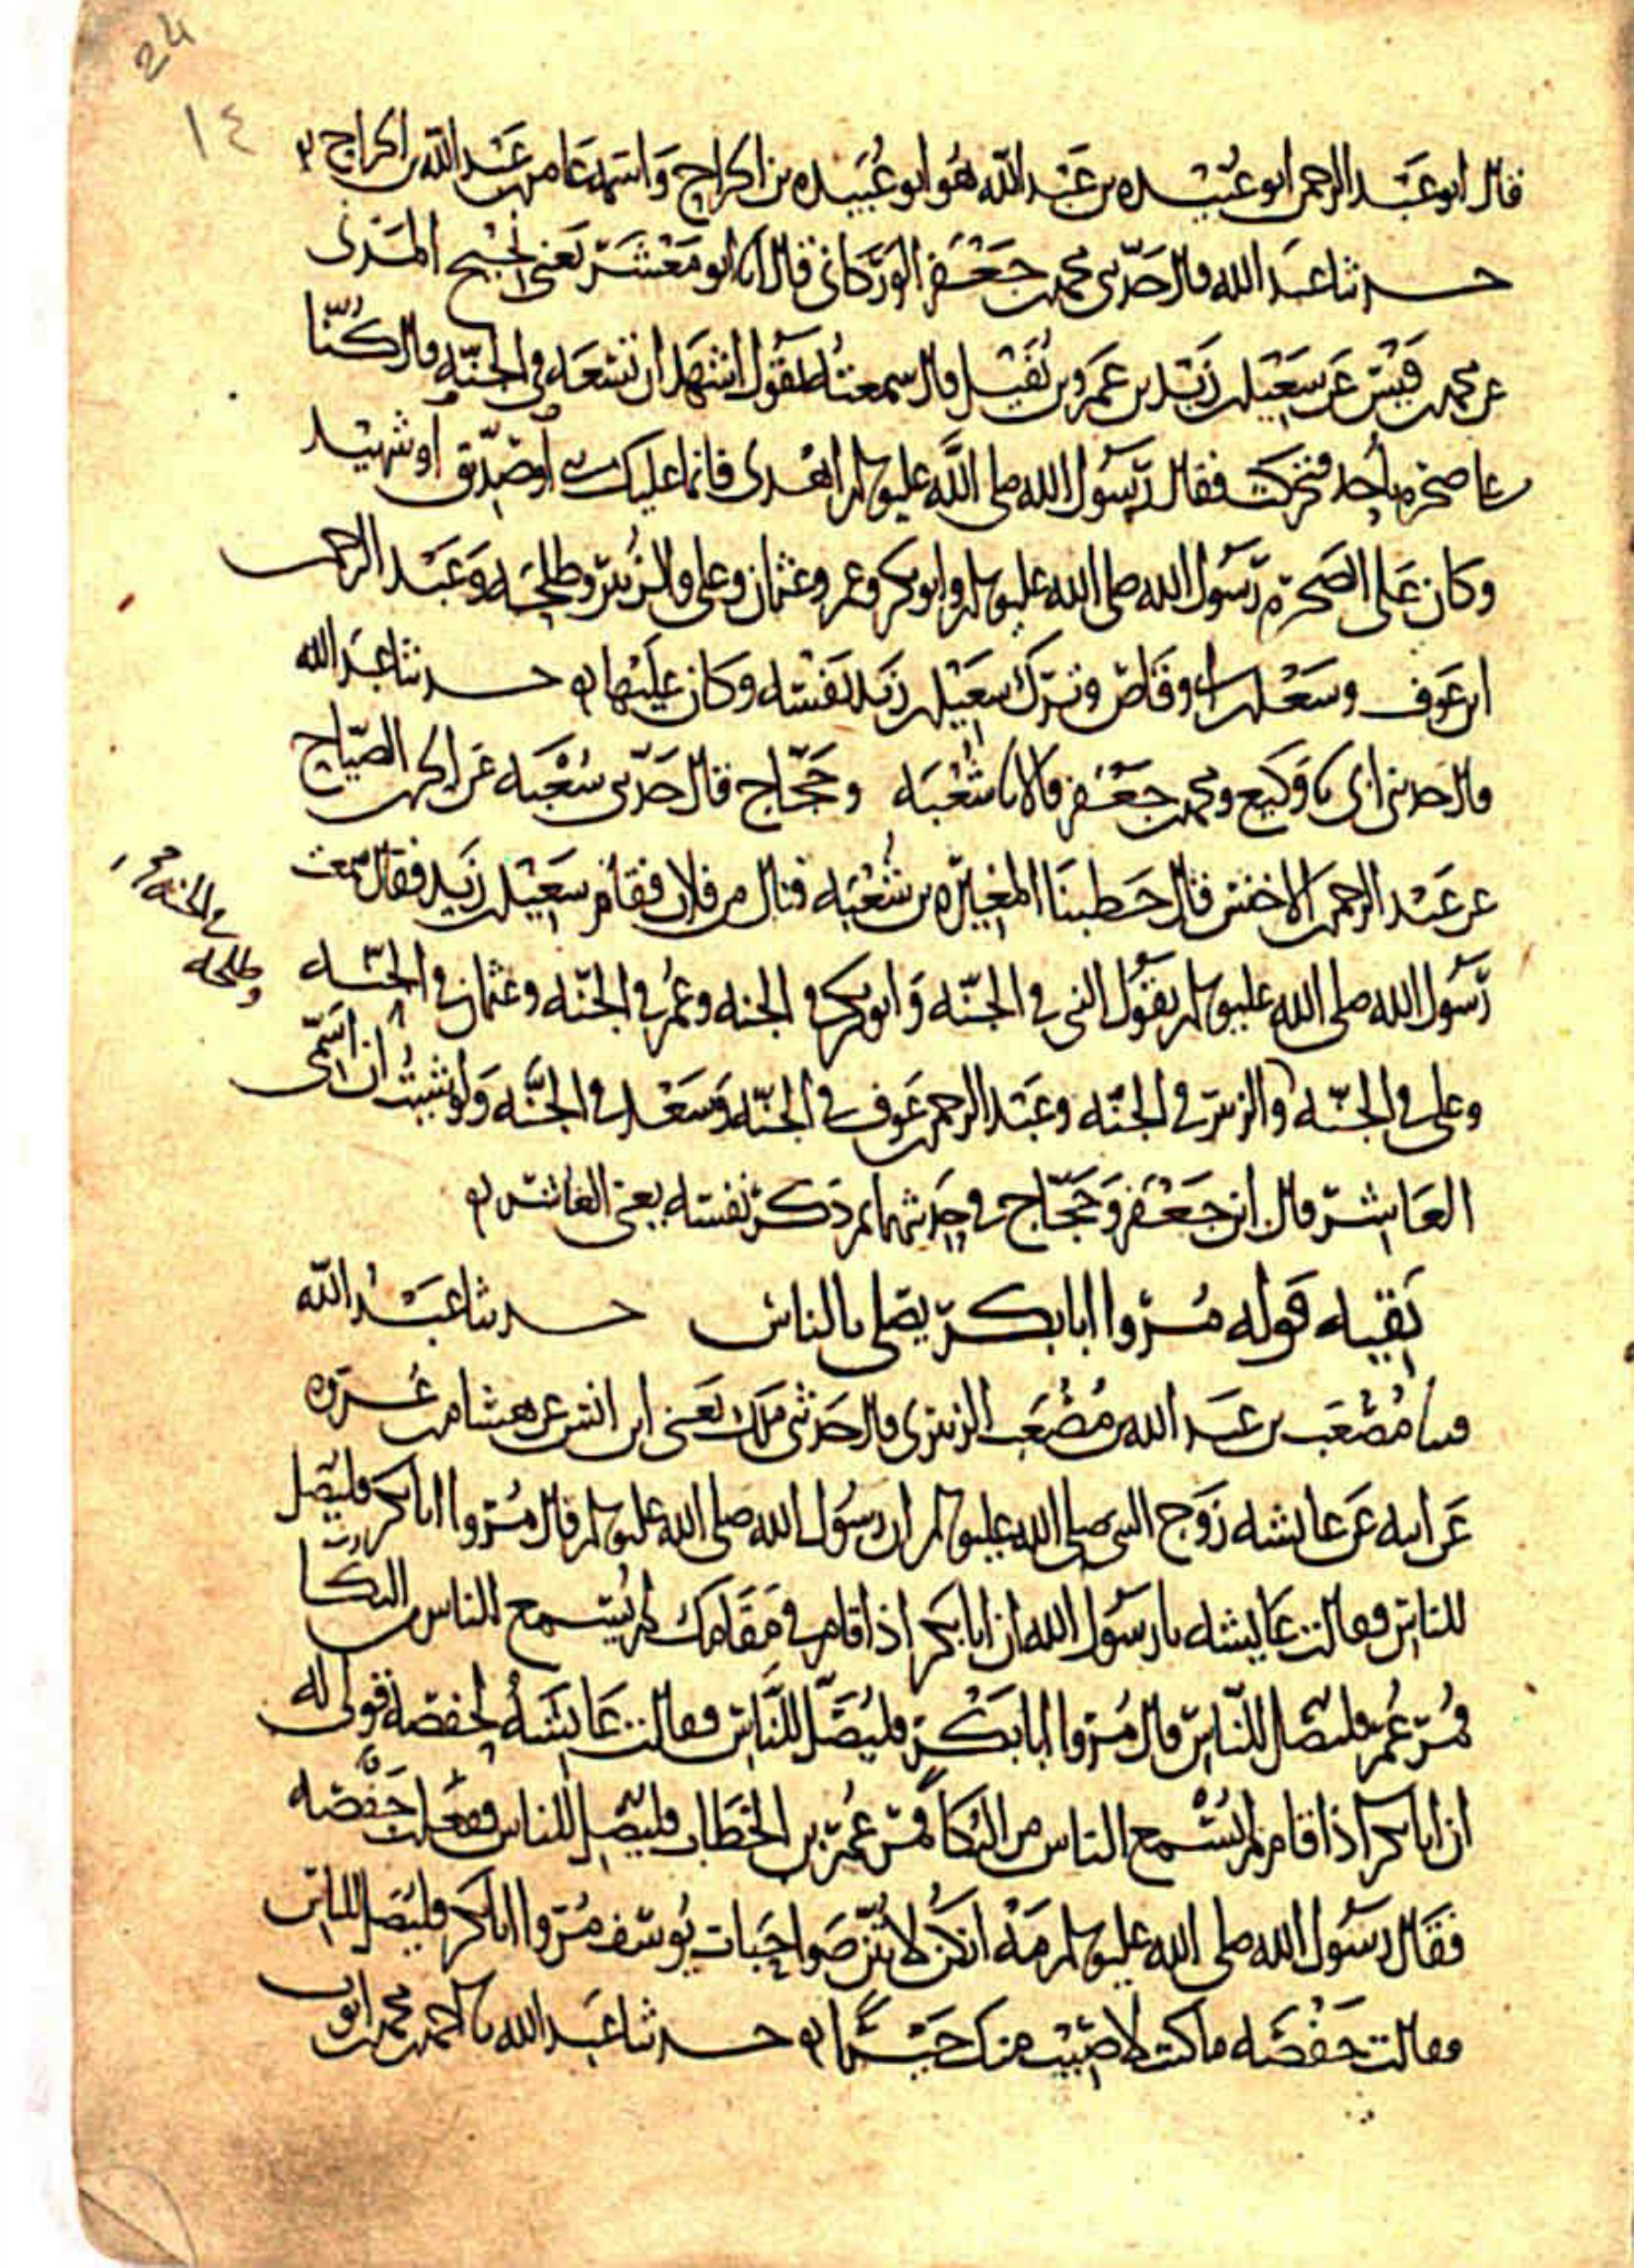 24
١٤
قال ابو عبد الرحمن ابو عبيده بن عبد الله هو ابو عبيده بن الجراح واسمه عامر بن عبد الله بن الجراح
حدثنا عبد الله قال حدثني محمد بن جعفر الوركاني قال انا ابو معشر يعني نجيح المدني
عن محمد بن قيس عن سعيد بن زيد بن عمرو بن نفيل قال سمعته يقول اشهد ان تسعه في الجنه قال كنا
على صخره باحد فتحركت فقال رسول الله صلى الله عليه وسلم اهدي فانما عليك نبي او صديق او شهيد
وكان على الصخرة رسول الله صلى الله عليه وسلم وابو بكر وعمر وعثمان وعلى والزبير وطلحه وعبد الرحمن
ابن عوف وسعد بن ابي وقاص وترك سعيد بن زيد نفسه وكان عليها حدثنا عبد الله
قال حدثني ابي نا وكيع ومحمد بن جعفر قالا نا شعبه وحجاج قال حدثني شعبه عن الحر بن الصياح
عن عبد الرحمن الاخنس قال خطبنا المغيره بن شعبه فنال من فلان فقام سعيد بن زيد فقال سمعت
رسول الله صلى الله عليه وسلم يقول النبي في الجنه وابو بكر في الجنه وعمر في الجنه وعثمان في الجنه
وعلى في الجنه والزبير في الجنه وعبد الرحمن بن عوف في الجنه وسعد في الجنه ولو شيت ان اسمي
وطلحه
في الجنه
العاشر قال ابن جعفر وحجاج في حديثهما ثم ذكر نفسه يعني العاشر
بقيه قوله مروا ابا بكر يصلى بالناس حدثنا عبد الله
نا مصعب بن عبد الله بن مصعب الزبيري قال حدثني ملك يعني ابن انس عن هشام بن عروه
عن ابيه عن عايشه زوج النبي صلى الله عليه وسلم ان رسول الله صلى الله عليه وسلم قال مروا ابا بكر فليصل
للناس فقالت عايشه يا رسول الله ان ابا بكر اذا قام في مقامك لم يسمع الناس من البكا
فمر عمر فليصل للناس قال مروا ابا بكر فليصل للناس فقالت عايشه لحفصه قولي له
ان ابا بكر اذا قام لم يسمع الناس من البكا فمر عمر بن الخطاب فليصل للناس ففعلت حفصه
فقال رسول الله صلى الله عليه وسلم مه انكن لانتن صواحبات يوسف مروا ابا بكر فليصل للناس
فقالت حفصه ما كنت لاصيب منك خيرا حدثنا عبد الله نا احمد بن محمد بن ايوب